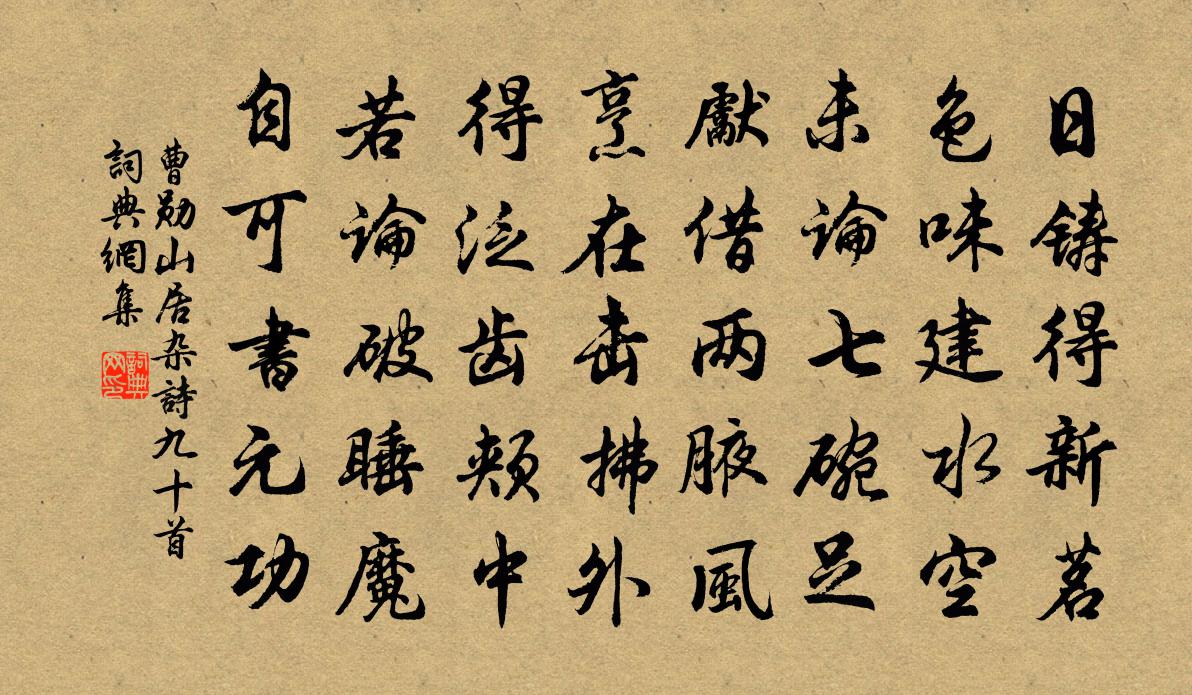 日铸得新茗
色味建水空
未論七碗足
獻借两腋風
烹在击拂外
得泛齿颊中
若論破睡魔
自可書元功
曹勋山居杂詩九十首
詞典網集
詞典网印